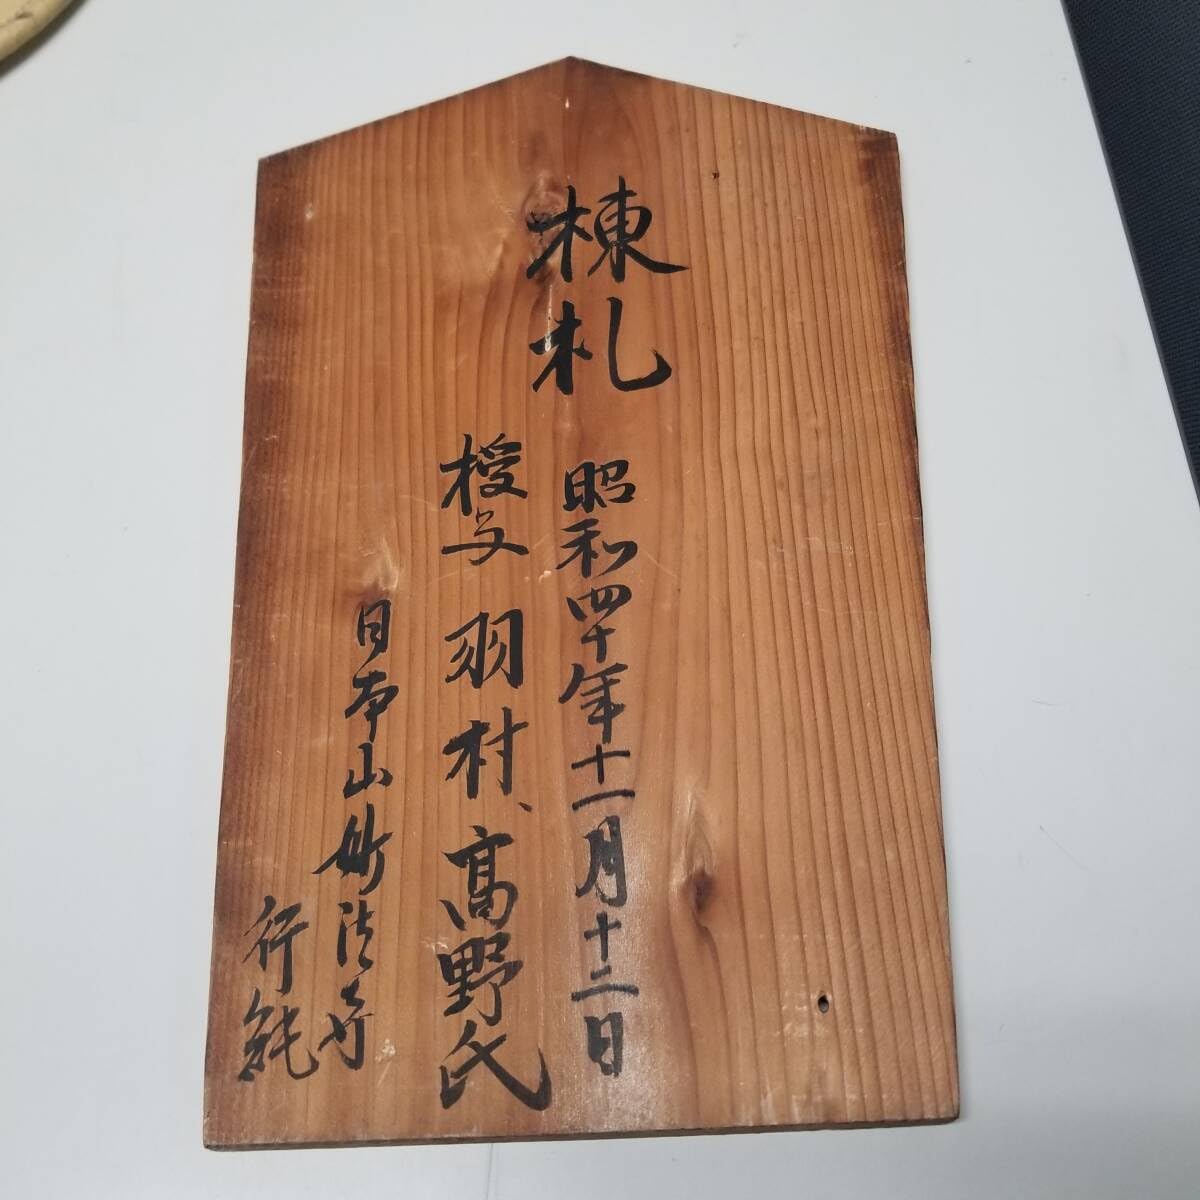 棟札
昭和四十年十一月十二日
授与 羽村、髙野氏
日本山妙法寺
行